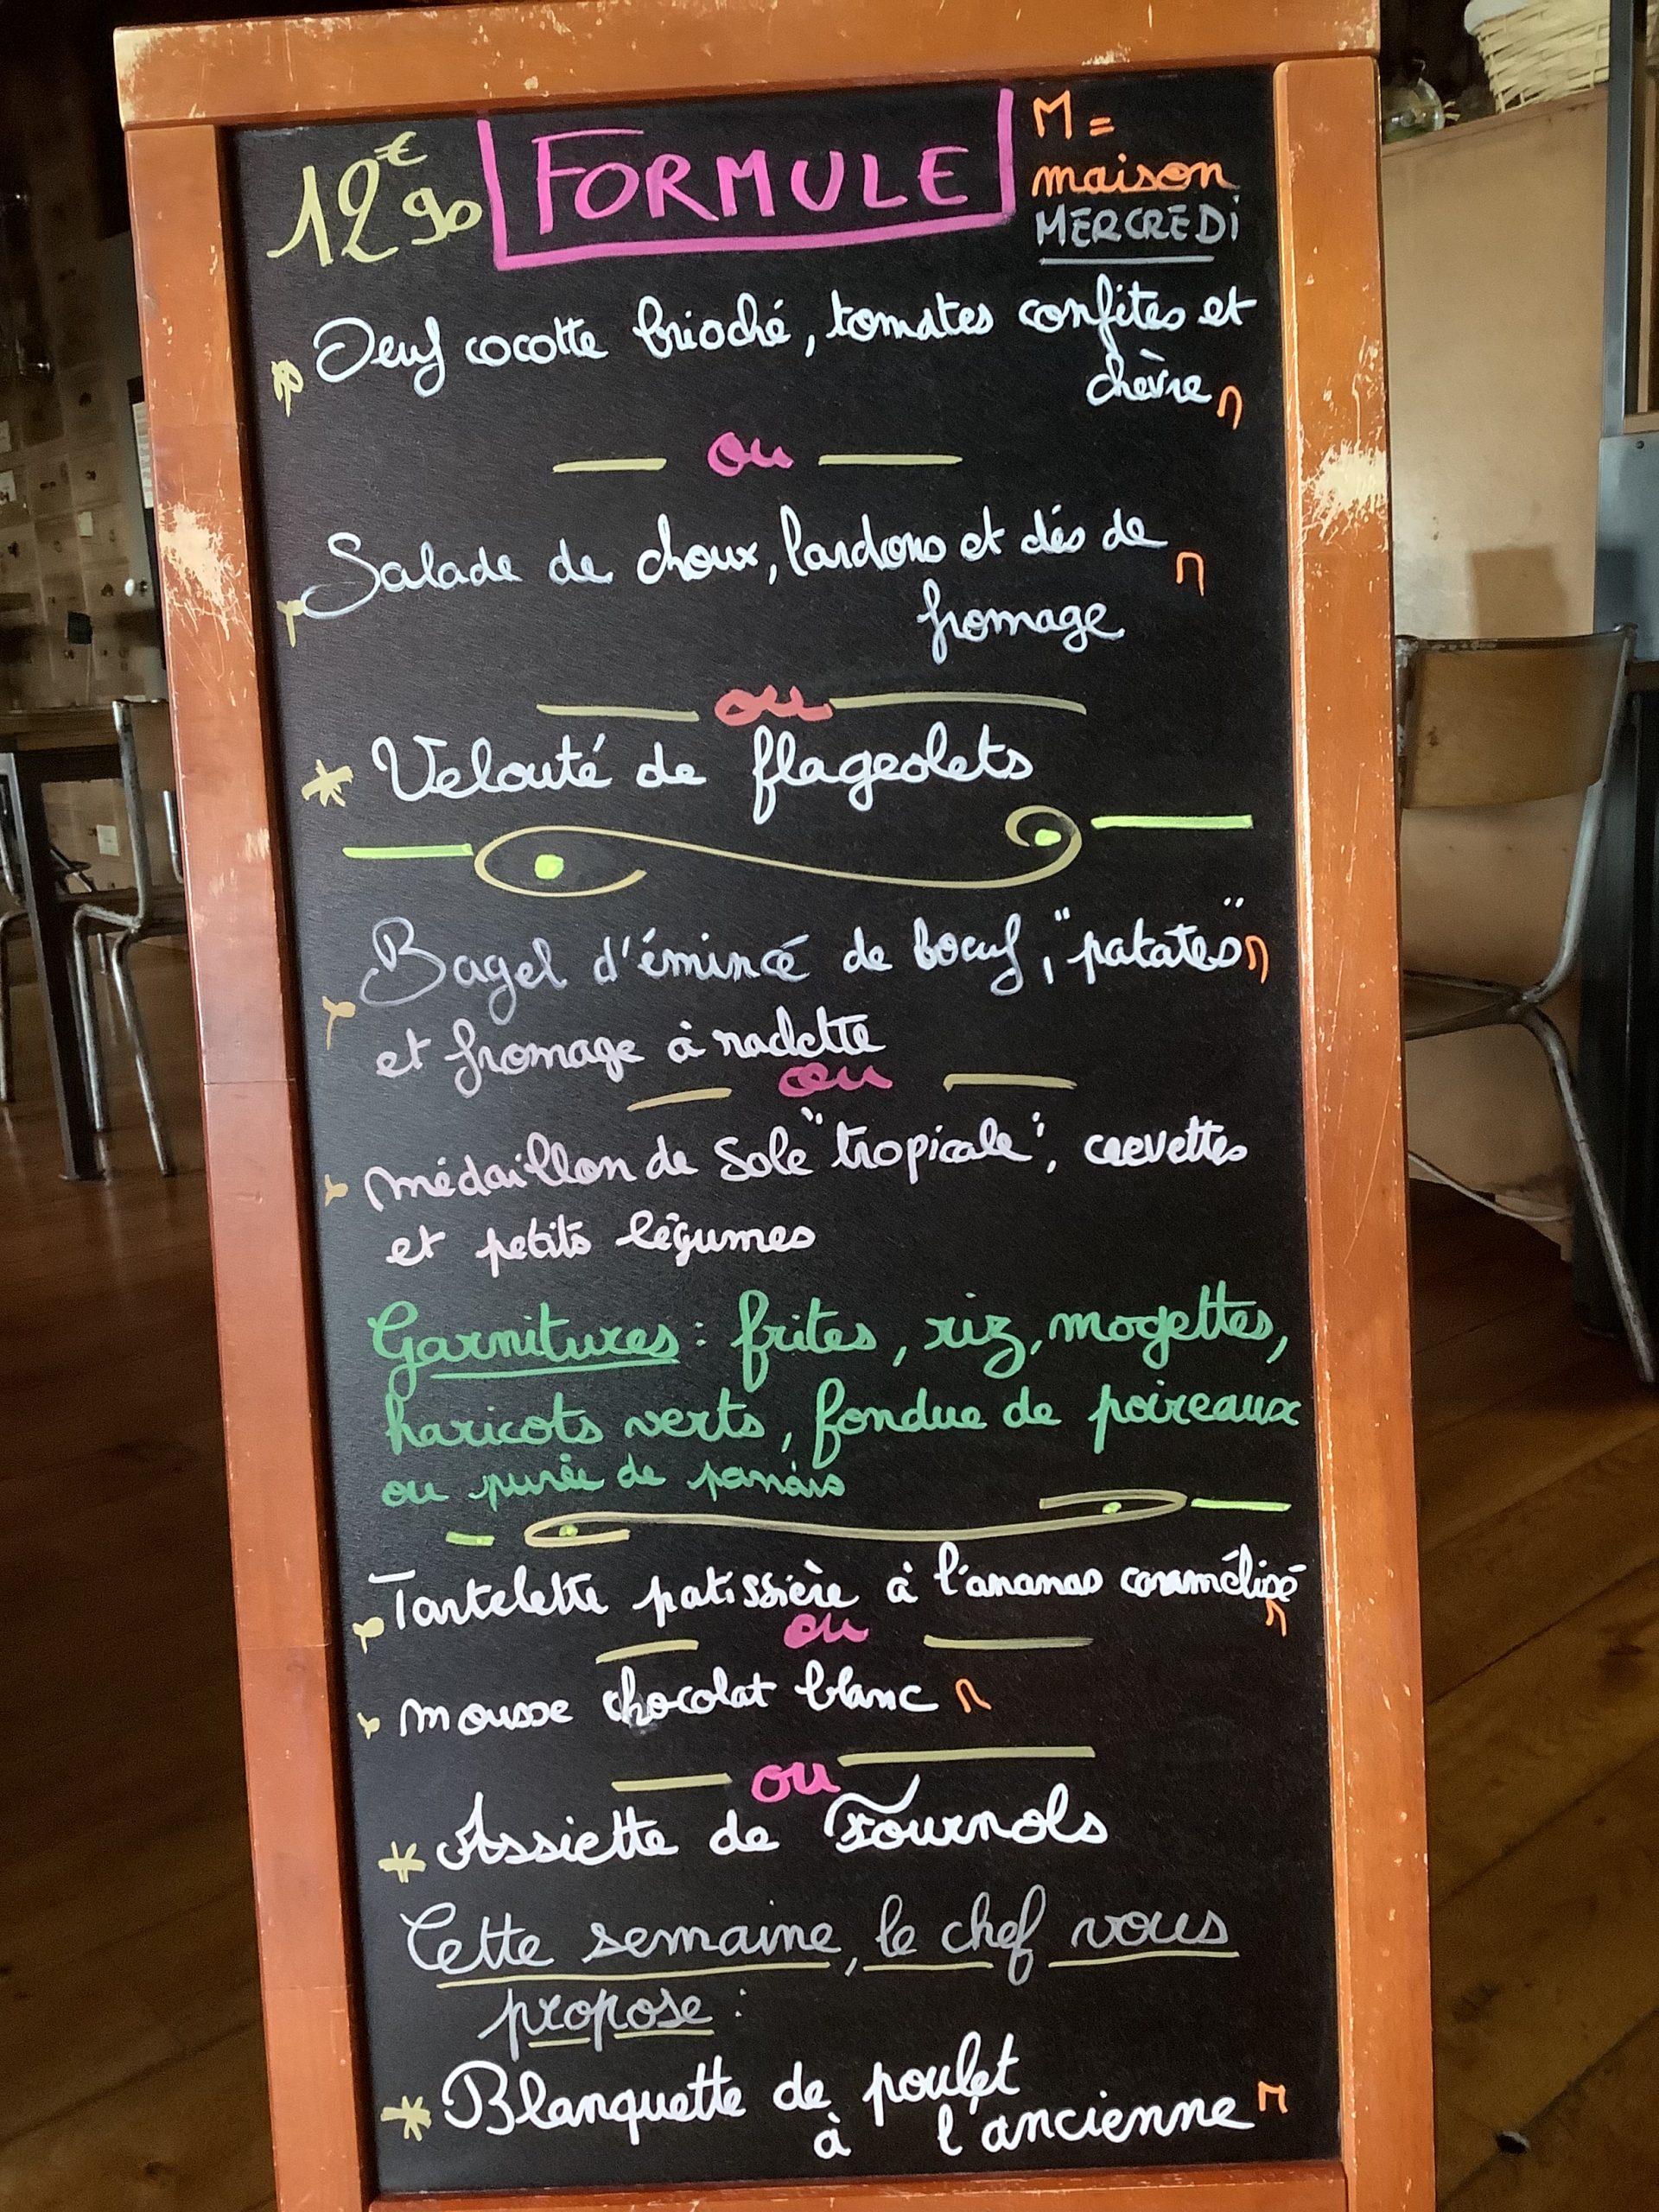 12€90 FORMULE M =
maison
MERCREDI
Oeuf cocotte brioché, tomates confites et
chèvre M
ou
Salade de choux, lardons et dés de M
fromage
ou
* Velouté de flageolets
Bagel d'émincé de boeuf, "patates" M
et fromage à raclette
ou
médaillon de sole "tropicale", crevettes
et petits légumes
Garnitures : frites, riz, mogettes,
haricots verts, fondue de poireaux
ou purée de panais
Tartelette patissière à l'ananas caramélisé
M
ou
mousse chocolat blanc M
ou
* Assiette de Fournols
Cette semaine, le chef vous
propose :
* Blanquette de poulet
à l'ancienne M